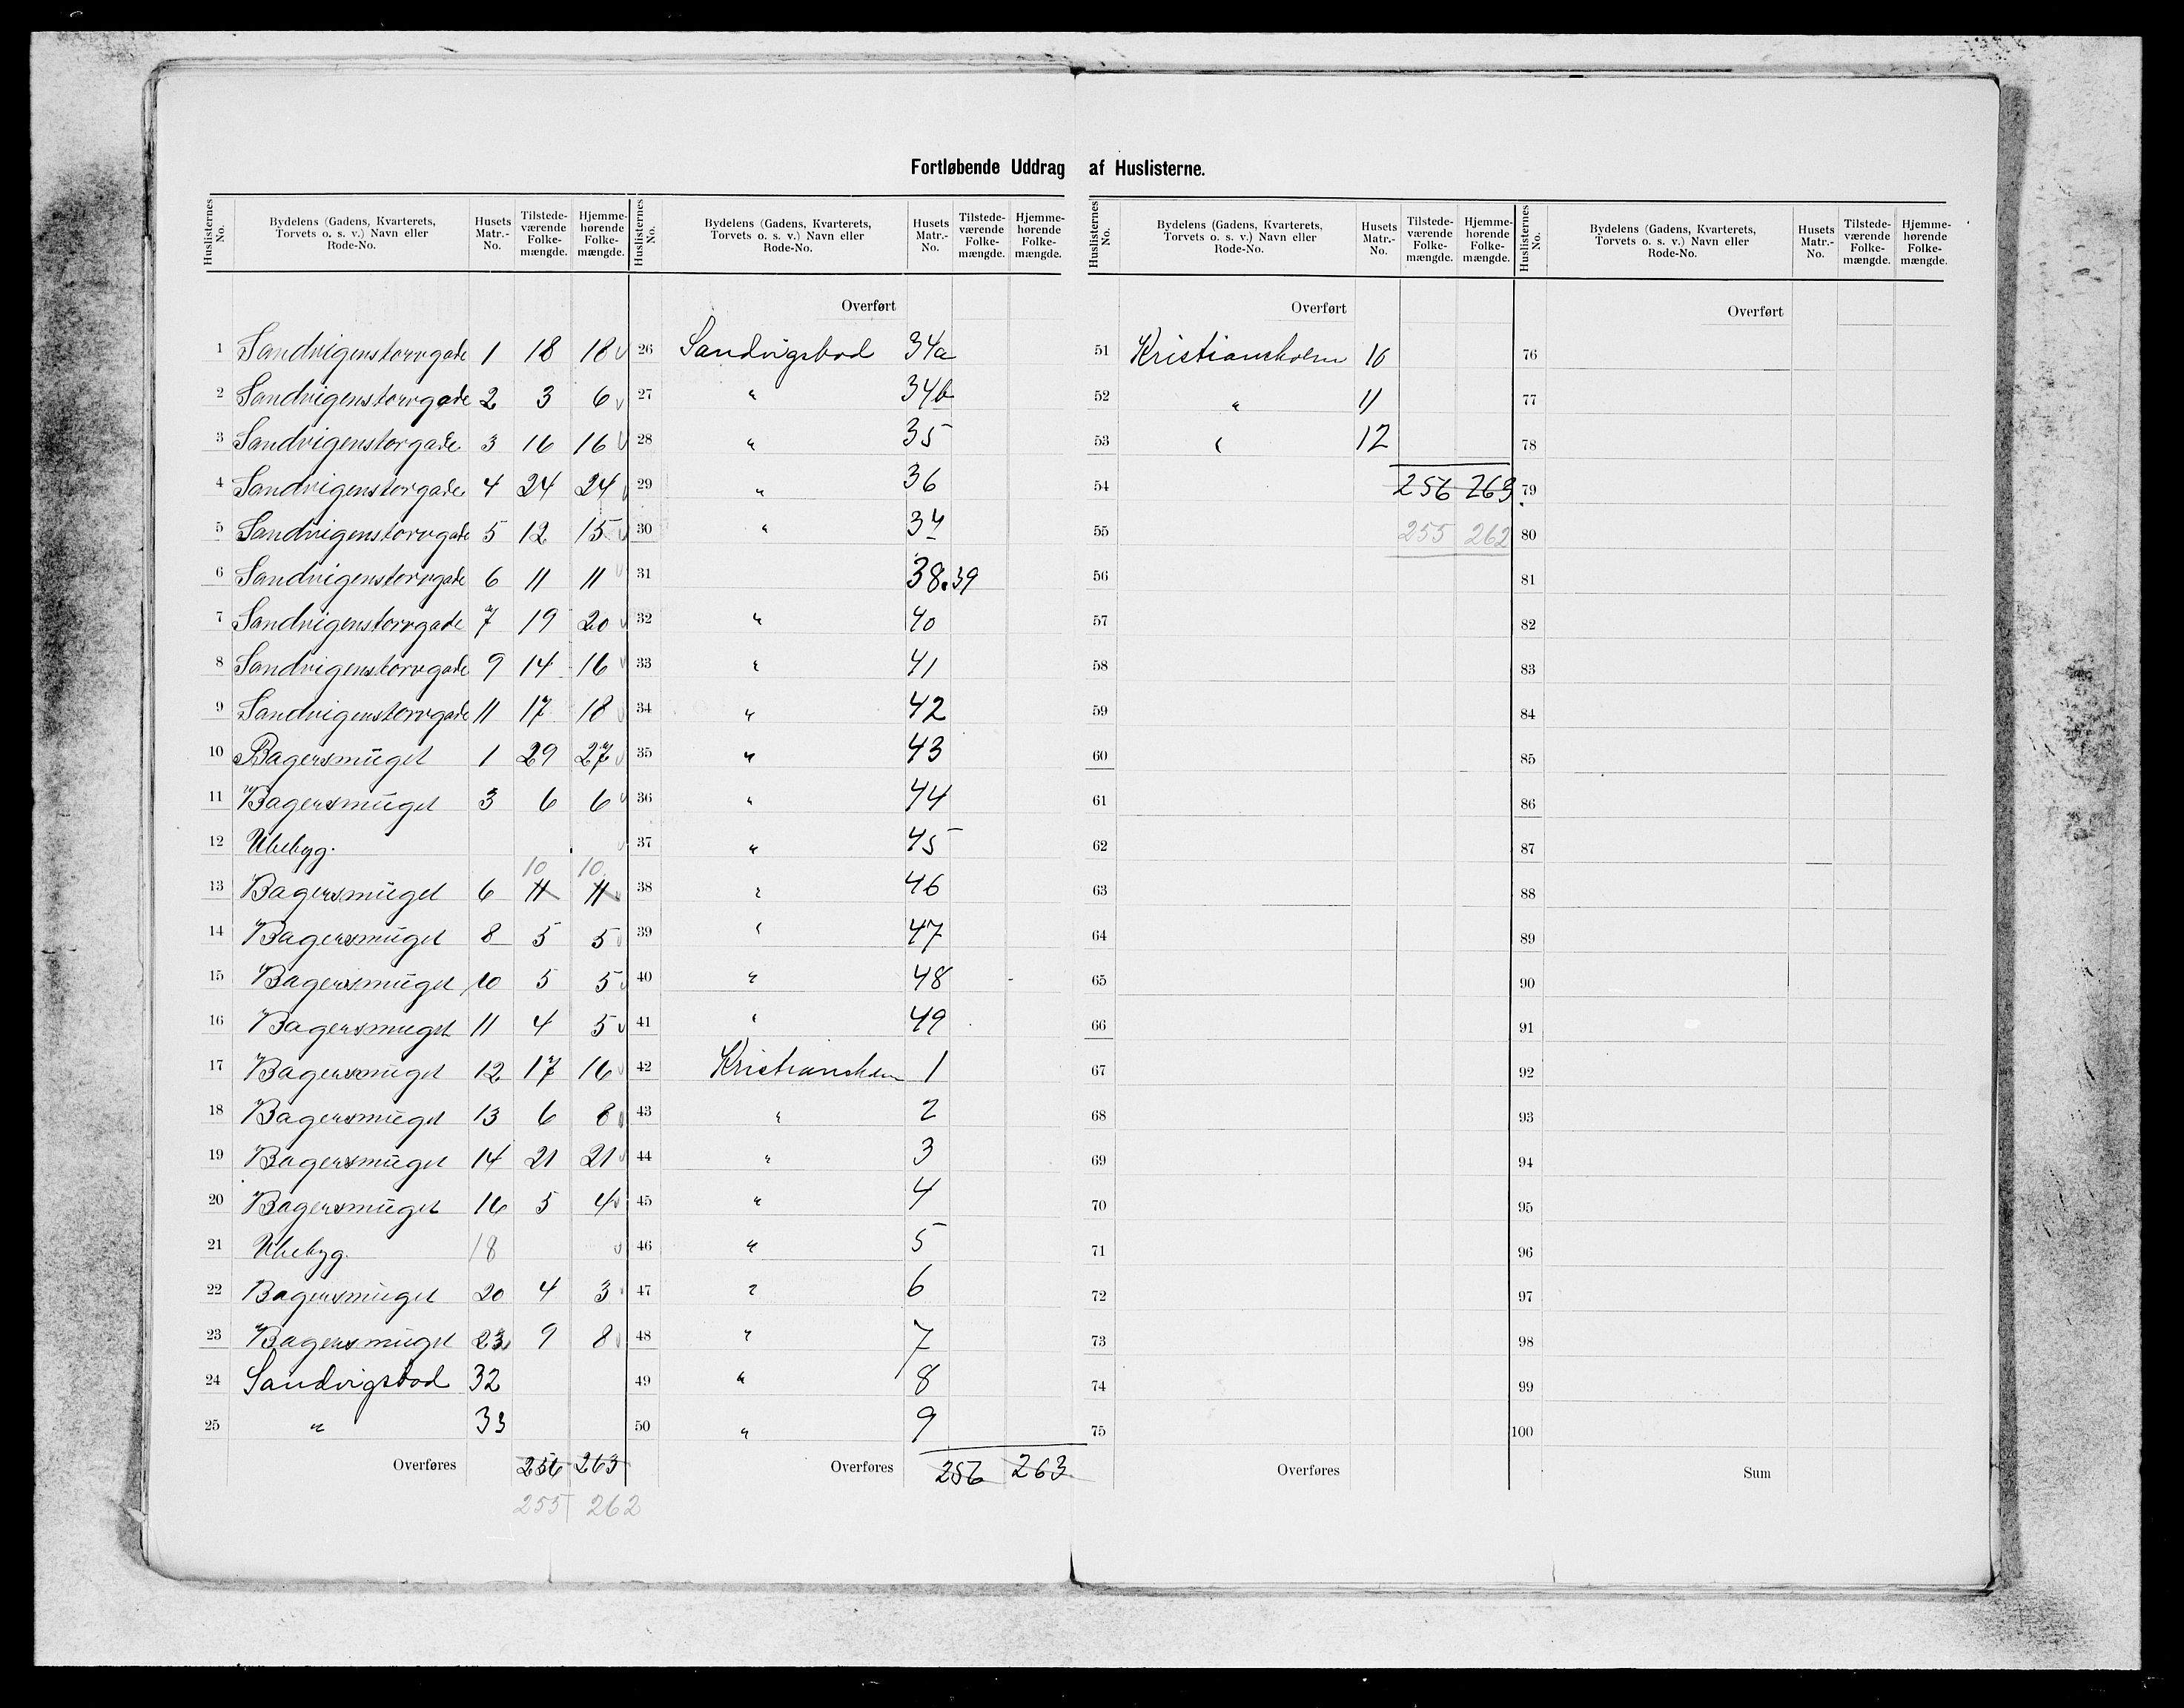 Fortløbende Uddrag af Huslisterne.
Huslisternes No. Bydelens (Gadens, Kvarterets, Torvets o. s. v.) Navn eller Rode-No. Husets Matr.-No. Tilstedeværende Folkemængde. Hjemmehørende Folkemængde.
1 Sandvigenstorvgade 1 18 18
2 Sandvigenstorvgade 2 3 6
3 Sandvigenstorgade 3 16 16
4 Sandvigenstorgade 4 24 24
5 Sandvigenstorvgade 5 12 15
6 Sandvigenstorvgade 6 11 11
7 Sandvigenstorvgade 7 19 20
8 Sandvigenstorvgade 9 14 16
9 Sandvigenstorvgade 11 17 18
10 Bagersmuget 1 29 27
11 Bagersmuget 3 6 6
12 Ubebyg.
10 10
13 Bagersmuget 6 11 11
14 Bagersmuget 8 5 5
15 Bagersmuget 10 5 5
16 Bagersmuget 11 4 5
17 Bagersmuget 12 17 16
18 Bagersmuget 13 6 8
19 Bagersmuget 14 21 21
20 Bagersmuget 16 5 4
21 Ubebyg. 18
22 Bagersmuget 20 4 3
23 Bagersmuget 23 9 8
24 Sandvigsbod 32
25 " 33
Overføres 256 263
255 262
Huslisternes No. Bydelens (Gadens, Kvarterets, Torvets o. s. v.) Navn eller Rode-No. Husets Matr.-No. Tilstedeværende Folkemængde. Hjemmehørende Folkemængde.
Overført
26 Sandvigsbod 34a
27 " 34b
28 " 35
29 " 36
30 " 37
31 38.39
32 " 40
33 " 41
34 " 42
35 " 43
36 " 44
37 " 45
38 " 46
39 " 47
40 " 48
41 " 49
42 Kristiansholm 1
43 " 2
44 " 3
45 " 4
46 " 5
47 " 6
48 " 7
49 " 8
50 " 9
Overføres 256 263
Huslisternes No. Bydelens (Gadens, Kvarterets, Torvets o. s. v.) Navn eller Rode-No. Husets Matr.-No. Tilstedeværende Folkemængde. Hjemmehørende Folkemængde.
Overført
51 Kristiansholm 10
52 " 11
53 " 12
54 256 263
55 255 262
56
57
58
59
60
61
62
63
64
65
66
67
68
69
70
71
72
73
74
75
Overføres
Huslisternes No. Bydelens (Gadens, Kvarterets, Torvets o. s. v.) Navn eller Rode-No. Husets Matr.-No. Tilstedeværende Folkemængde. Hjemmehørende Folkemængde.
Overført
76
77
78
79
80
81
82
83
84
85
86
87
88
89
90
91
92
93
94
95
96
97
98
99
100
Sum